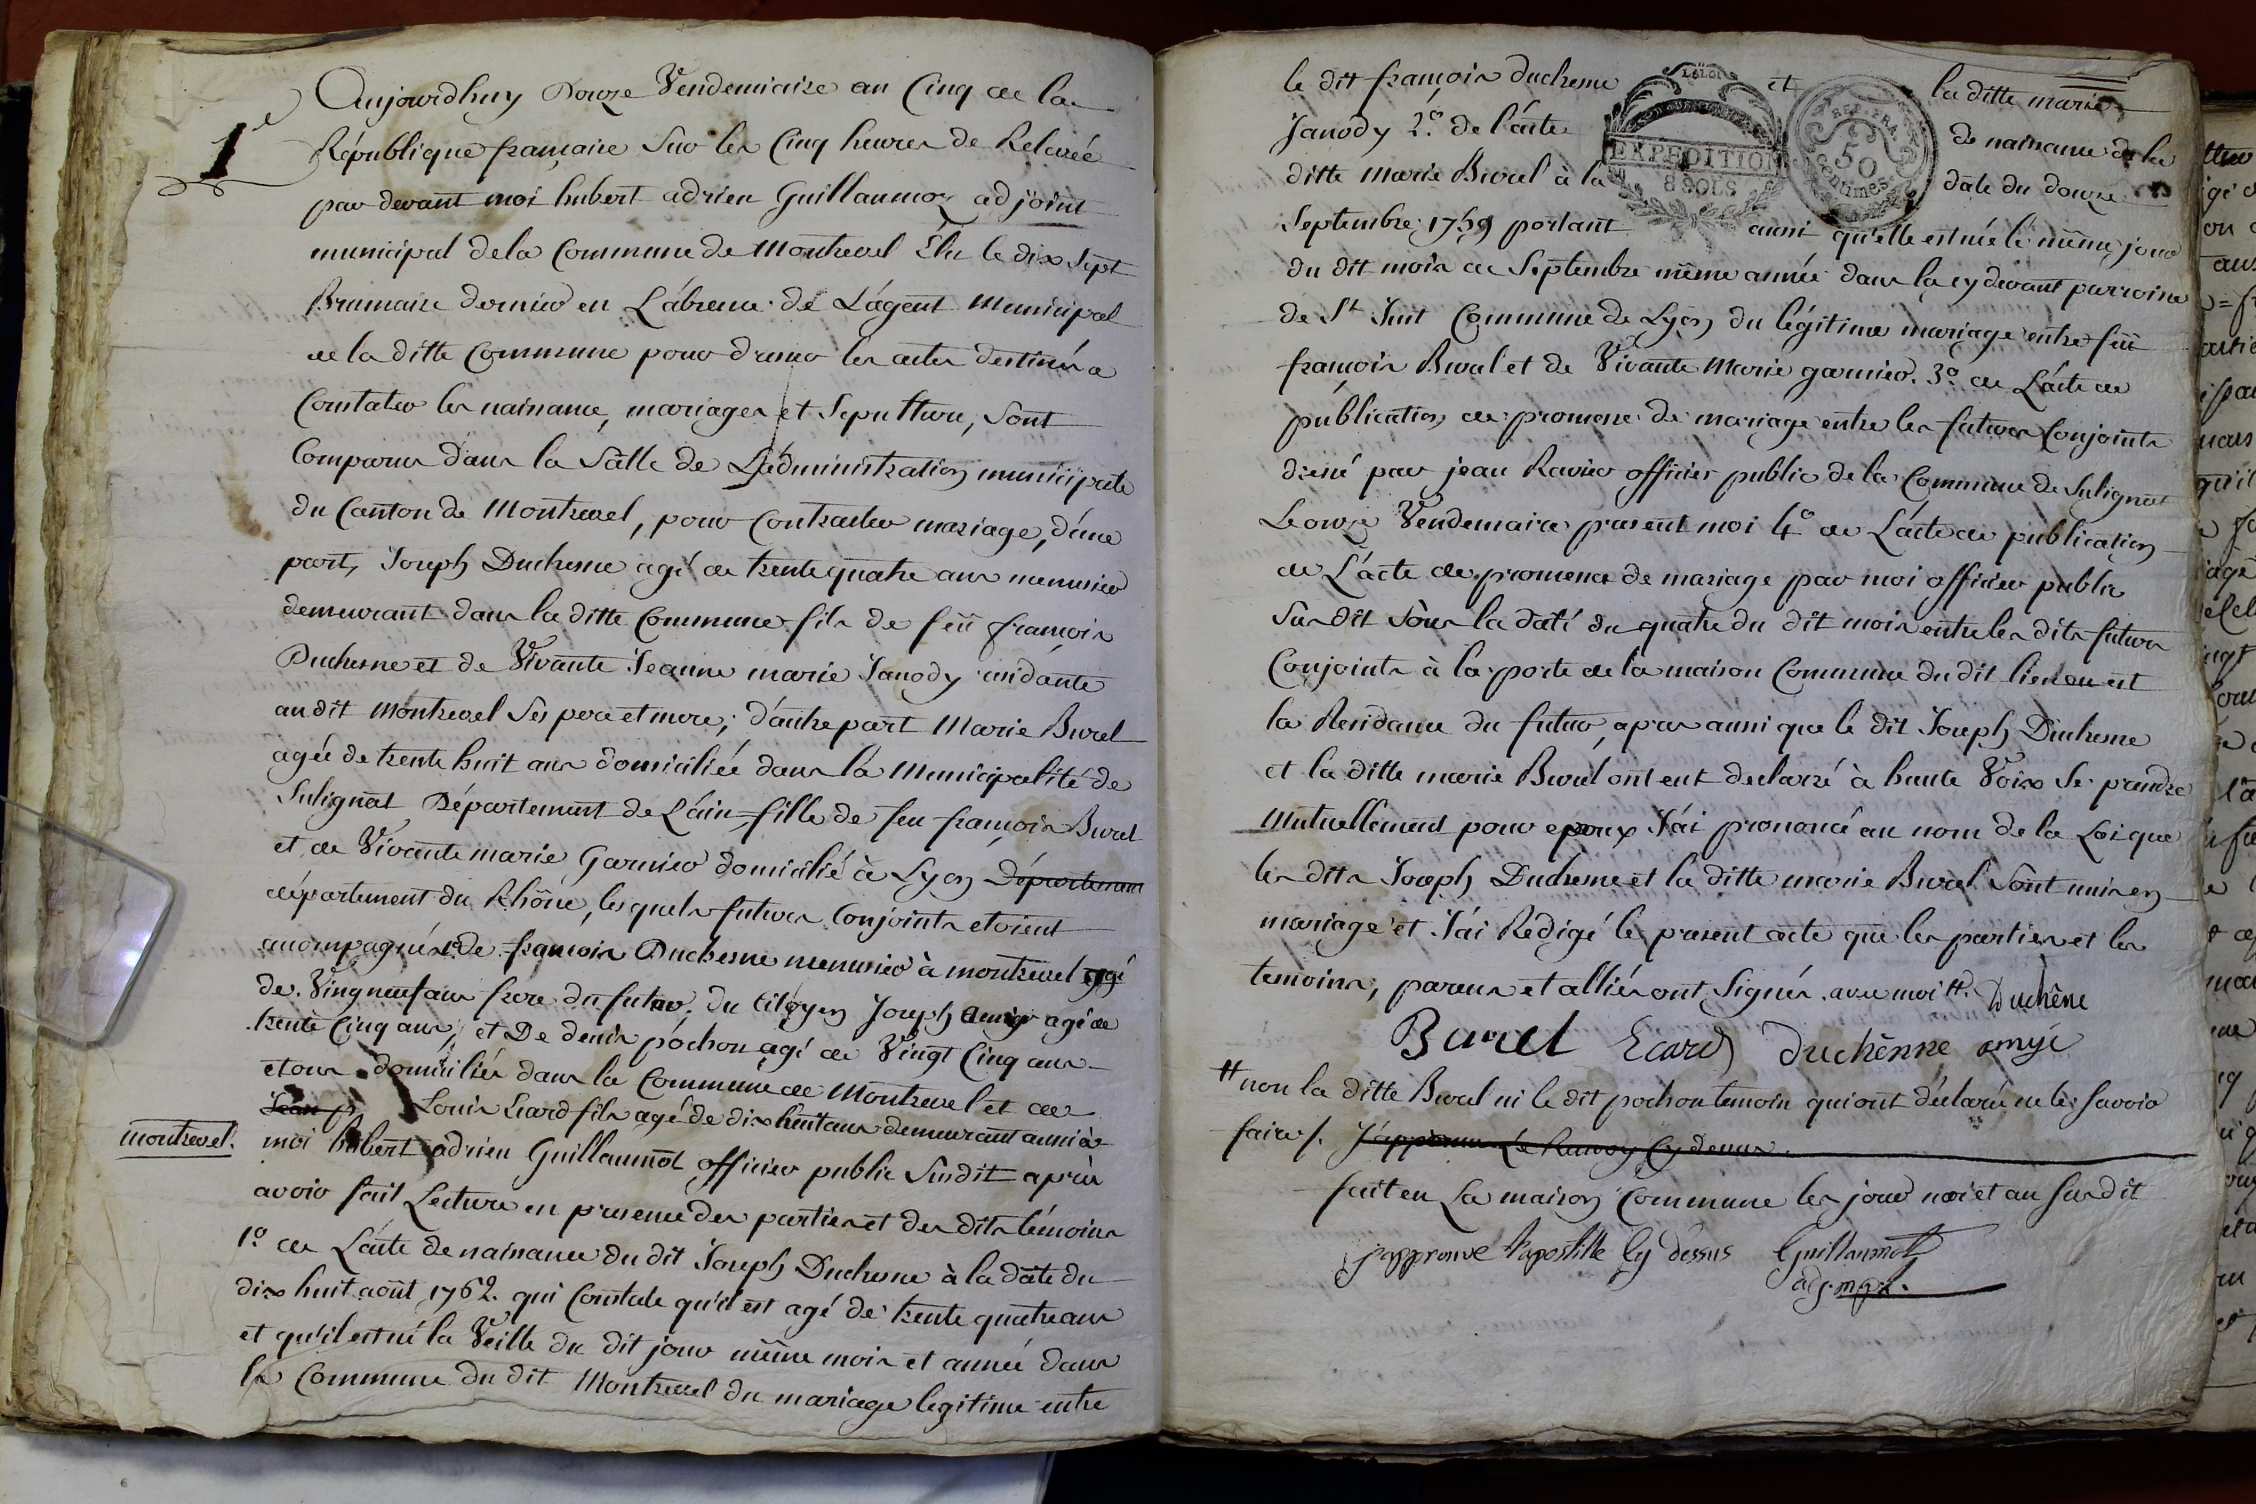 1e
Aujourdhuy Douze Vendemiaire an Cinq de la
République française Sur les Cinq heures de Relevée
par devant moi hubert adrien Guillaumoz adjoint
municipal de la Commune de Montrevel Elu le dix Sept
Brumaire dernier en L'absence de L'agent Municipal
de la ditte Commune pour dresser les actes destinés a
Constater les naissance, mariages et Sepulture, Sont
Comparus dans la Salle de L'administration municipale
du Canton de Montrevel, pour Contracter mariage, d'une
part, Joseph Duchesne agé de trente quatre ans menusier
demeurant dans la ditte Commune fils de feü françois
Duchesne et de Vivante Jeanne marie Janody residante
au dit Montrevel Ses pere et mere; d'autre part Marie Burel
agée de trente huit ans domiciliée dans la Municipalité de
Sulignat Département de L'ain, fille de feu françois Burel
et de Vivante marie Garnier domicilié à Lyon Département
département du Rhône, les quels futurs Conjoints etoient
accompagnés 1o de françois Duchesne menusier à montrevel agé
de Vingneuf ans frere du futur, du Citoyen Joseph amis agé de
trente Cinq ans, et De denis pochon agé de Vingt Cinq ans
et tous domiciliés dans la Commune de Montrevel et de
Jean Louis Ecard fils agé de dix huit ans demeurant aussi à
montrevel. moi hubert adrien Guillaumot officier public Susdit après
avoir fait Lecture en presence des parties et des dits témoins
1o de L'acte de naissance du dit Joseph Duchesne à la date du
dix huit août 1762. qui Constate qu'il est agé de trente quatre ans
et qu'il est né la Veille du dit jour même mois et année dans
la Commune du dit Montrevel du mariage legitime entre
le dit françois duchesne et la ditte marie
Janody 2o de l'acte de naissance de la
ditte marie Burel à la date du douze
Septembre 1759 portant aussi qu'elle est née le même jour
du dit mois de Septembre même année dans la cy devant parroisse
de St Just Commune de Lyon du légitime mariage entre feü
françois Burel et de Vivante Marie garnier. 3o de L'acte de
publication de promesse de mariage entre les futurs Conjoints
dressé par jean Ravier officier public de la Commune de Sulignat
Le onze Vendemiaire present moi 4o de L'acte de publication
de L'acte de promesse de mariage par moi officier public
Sus dit Sous la date du quatre du dit mois entre les dits futurs
Conjoints à la porte de la maison Commune du dit lieu ou est
la Residance du futur, apres aussi que le dit Joseph Duchesne
et la ditte marie Burel ont eut declaré à haute Voix Se prendre
Mutuellement pour epoux J'ai prononcé au nom de la Loi que
les dits Joseph Duchesne et la ditte marie Burel Sont unis en
mariage et J'ai Rédigé le present acte que les parties et les
temoins, parens et alliés ont Signés avec moi #. Duchêne
Burel Ecard duchênne amyé
# non la ditte Burel ni le dit pochon temoin qui ont déclaré ne le Savoir
faire /. J'approuve Le Renvoy Cy dessus.
fait en La maison Commune les jour mois et an Susdit
j'approuve l'apostille Cy dessus Guillaumot
adj. mpl.
LA LOI
EXPEDITION
8 SOLS
REP. FRA.
50
Centimes